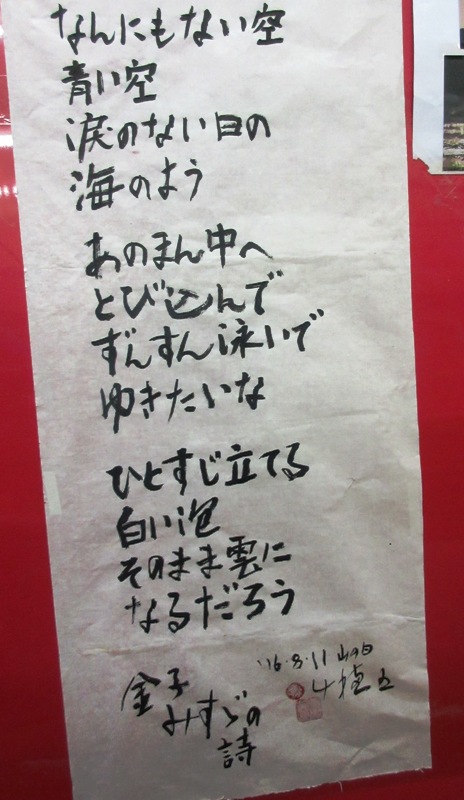 なんにもない空
青い空
涙のない日の
海のよう
あのまん中へ
とび込んで
ずんすん泳いで
ゆきたいな
ひとすじ立てる
白い泡
そのまま雲に
なるだろう
'16.8.11 山の日
金子
みすゞの
詩